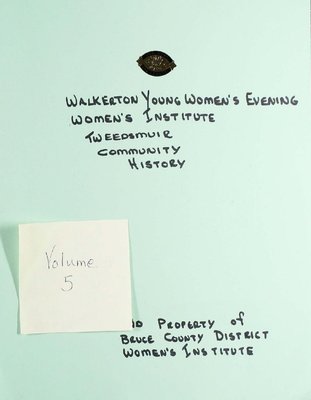 Walkerton Young Women's Evening
Women's Institute
Tweedsmuir
Community
History
Volume
5
Property of
Bruce County District
Women's Institute